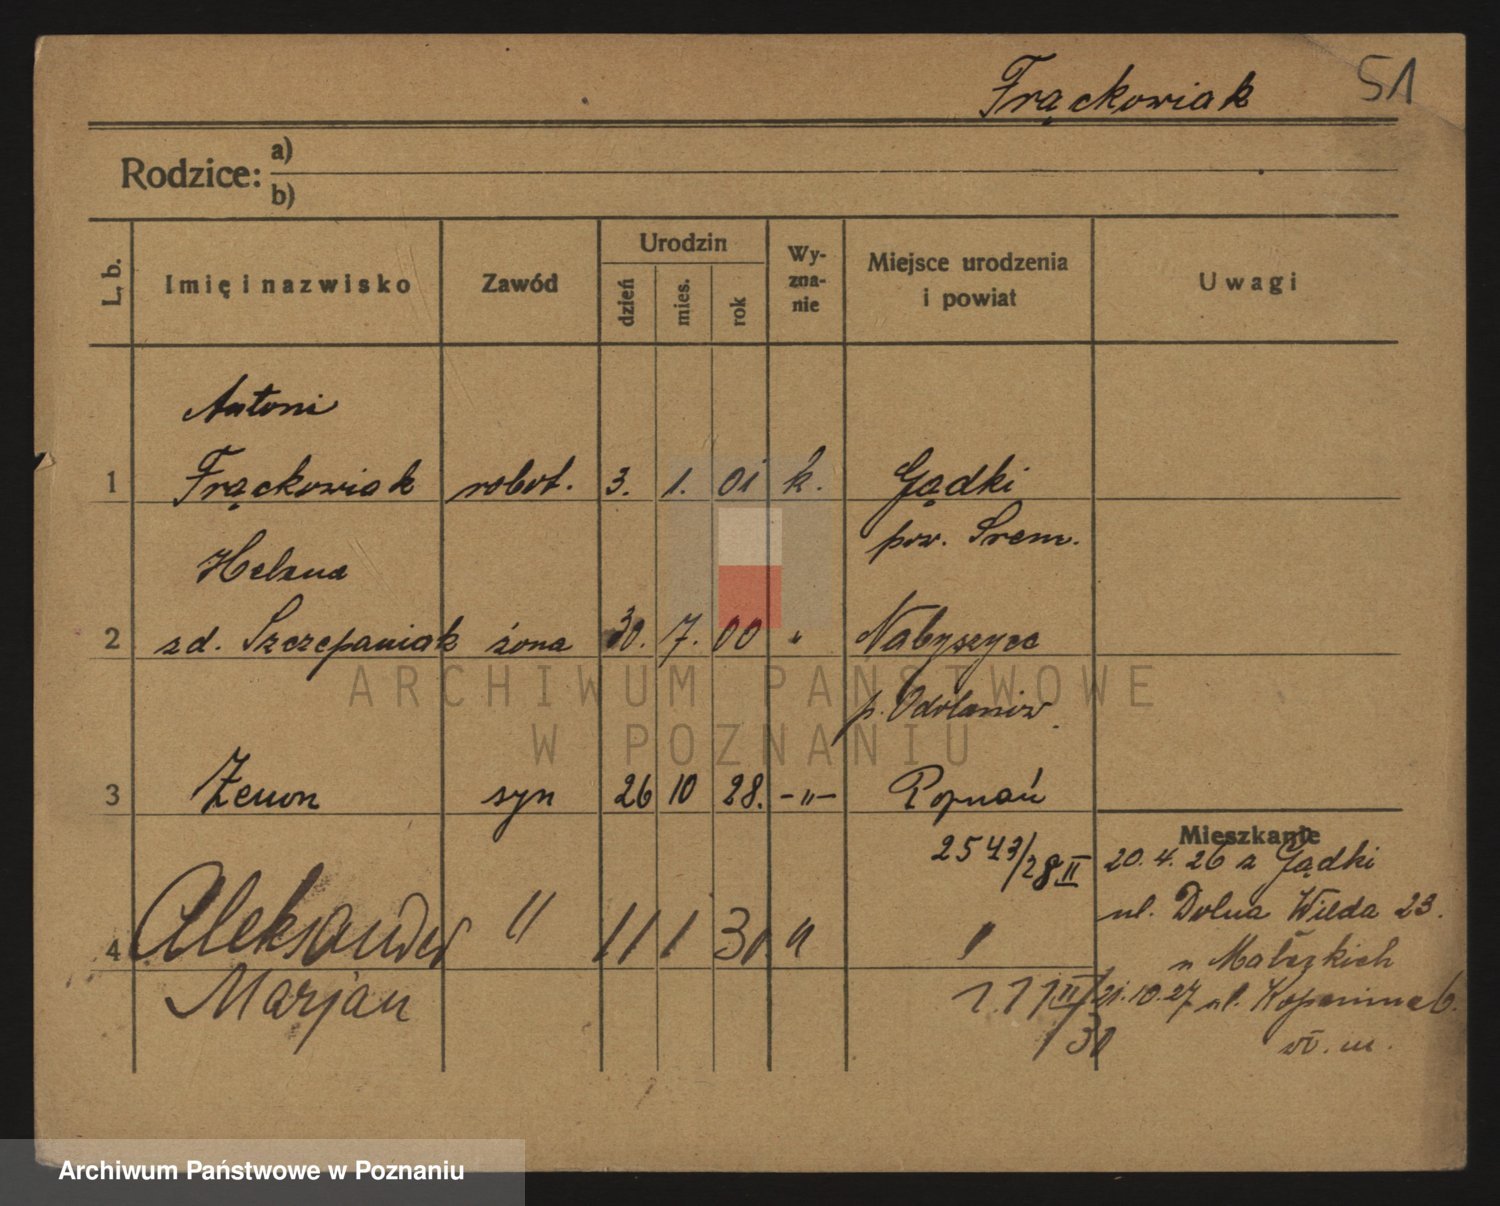 Frąckowiak 51
Rodzice: a)
b)
L. b. Imię i nazwisko Zawód Urodzin dzień mies. rok Wy-zna-nie Miejsce urodzenia i powiat Uwagi
Antoni
1 Frąckowiak robot. 3. 1. 01 k. Gądki
pow. Śrem.
Helena
2 zd. Szczepaniak żona 30. 7. 00 " Nabyszyce
p. Odolanów
3 Zenon syn 26 10 28. -"- Poznań
2543/28 II
4 Aleksander " 11 1 30 "
Marjan
Mieszkanie
20. 4. 26 z Gądki
ul. Dolna Wilda 23.
21. 10. 27 ul. Kopanina 6.
wł. m.
ARCHIWUM PAŃSTWOWE
W POZNANIU
Archiwum Państwowe w Poznaniu